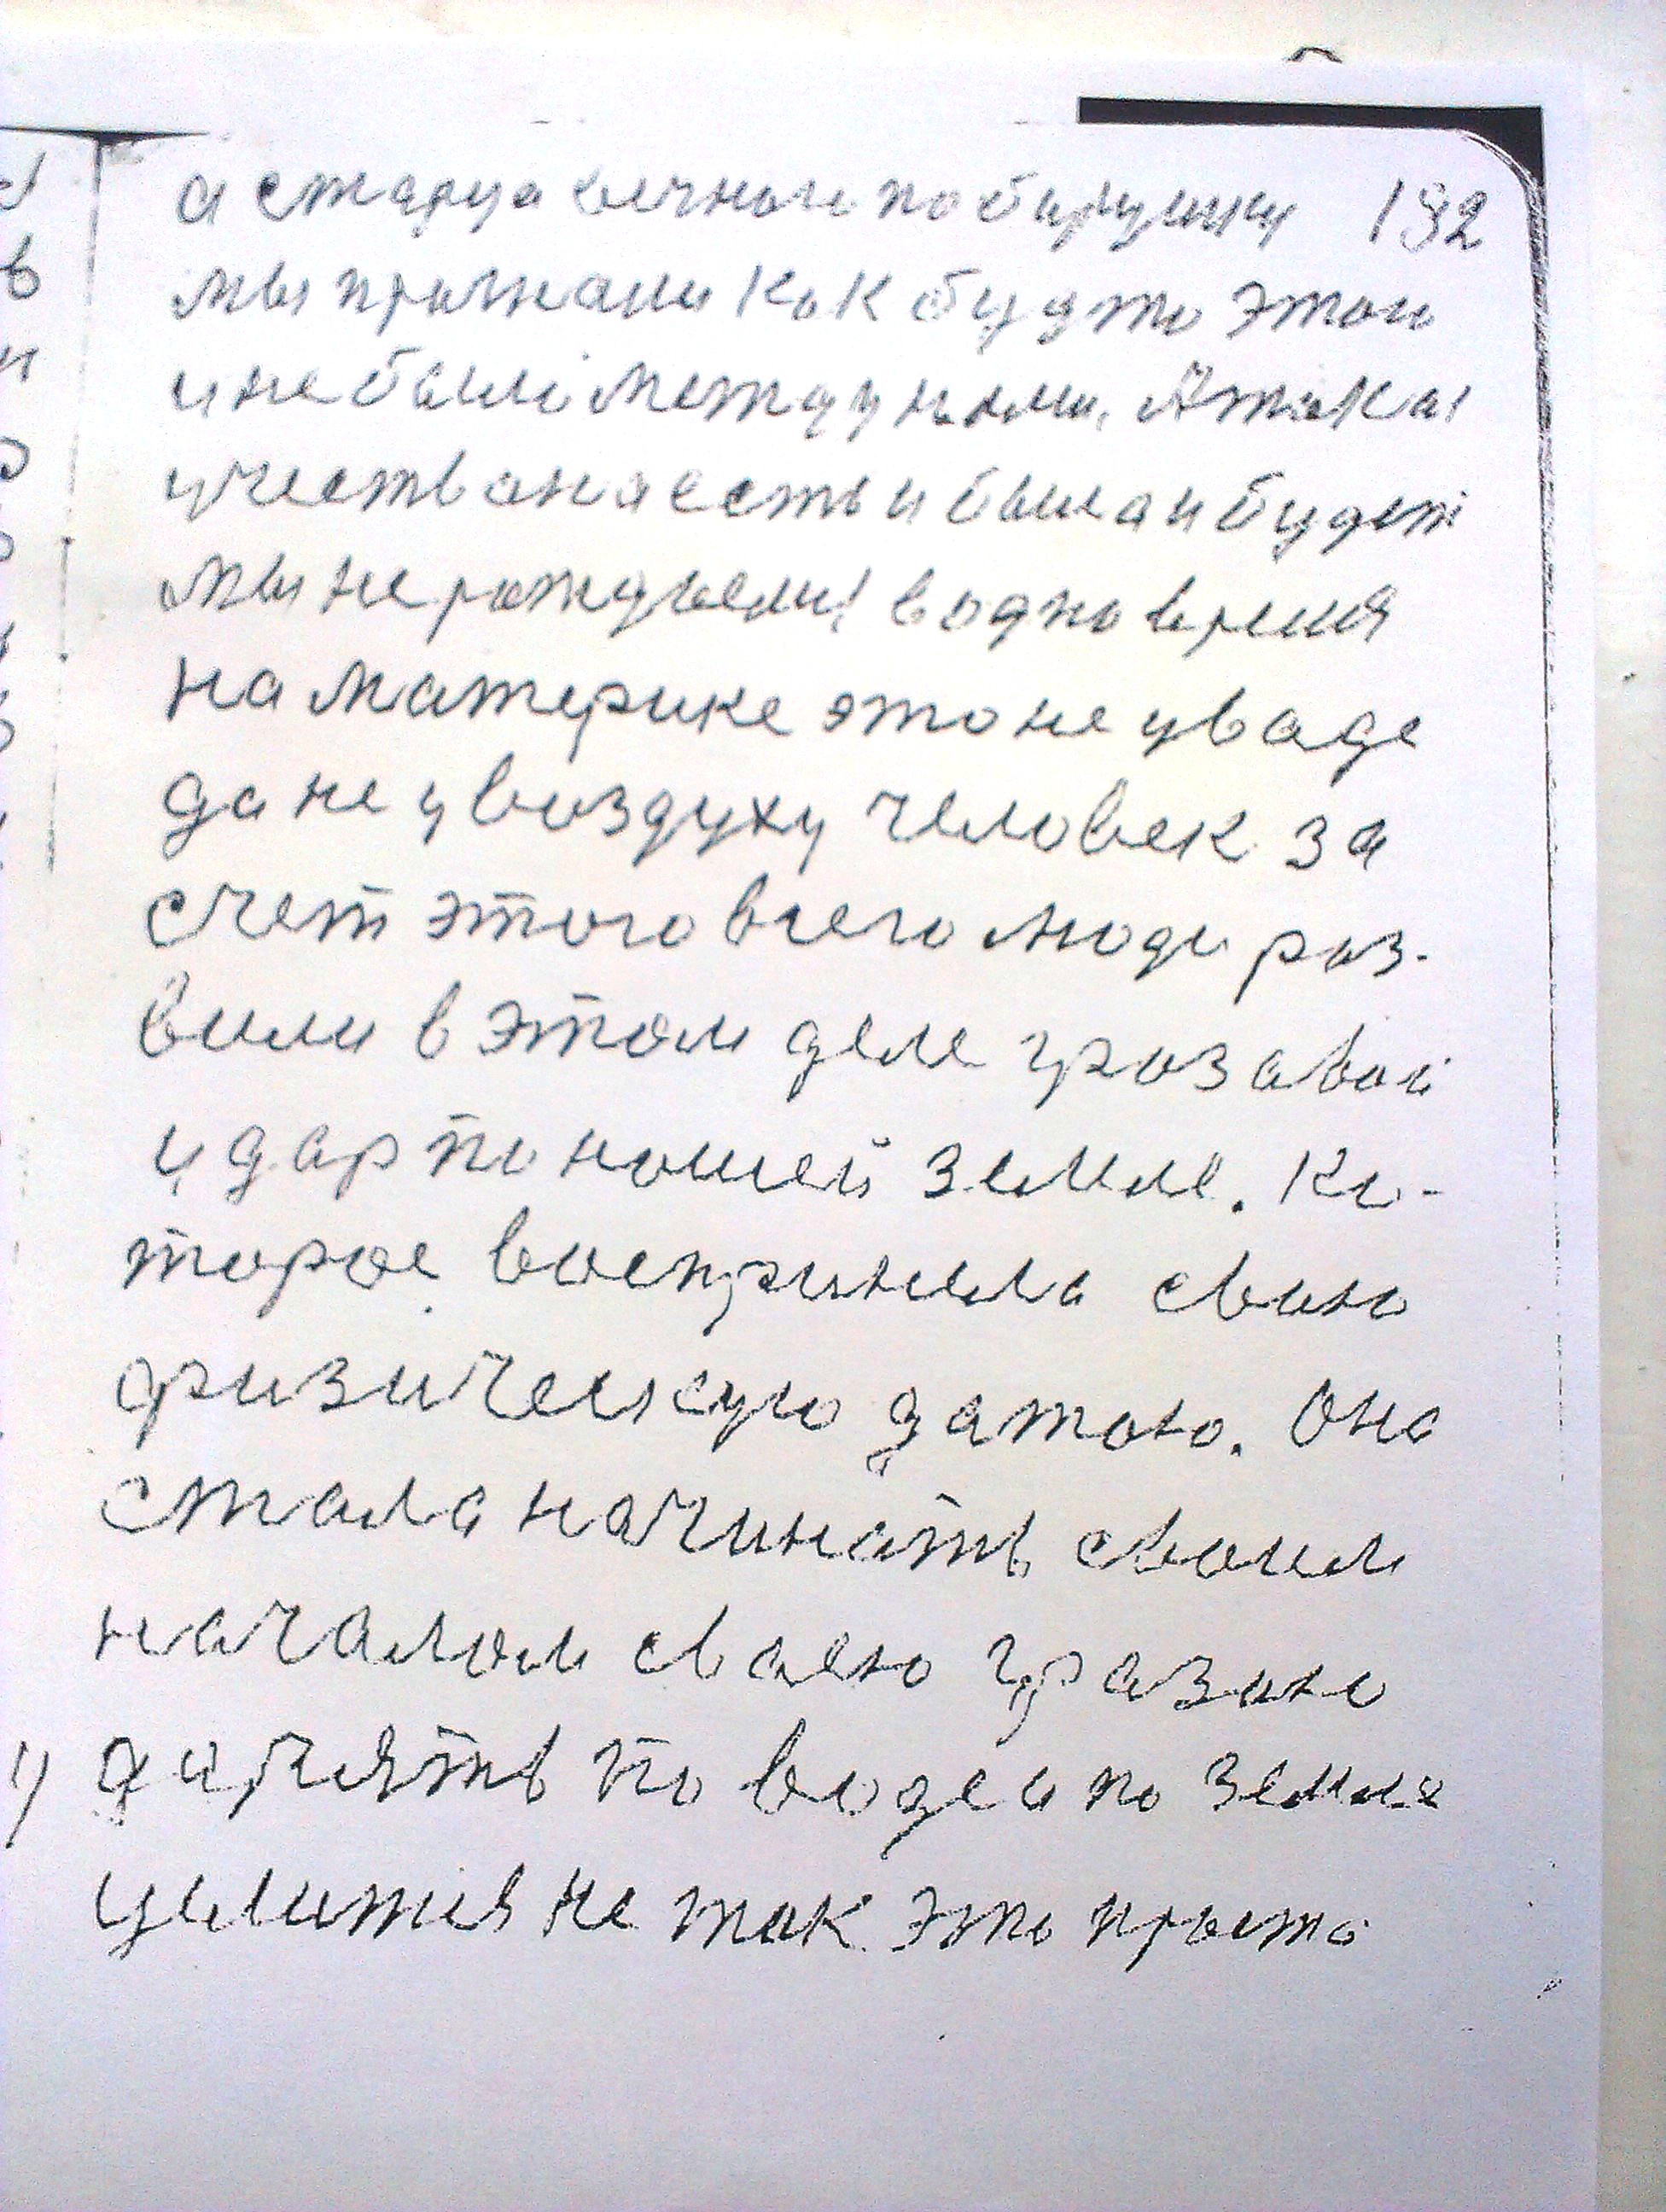 а старца вечного побирушку 192
мы прожали как будто этого
и не было между нами. А такая
участь она есть и была и будет
мы не рождаемы в одно время
на материке это не у воде
да не у воздуху человек за
счет этого всего люди роз-
вили в этом деле грозавой
удар по нашей земле. Ко-
торое восприняла свою
физическую датою. Она
стала начинать своим
началом сваею грозою
ударять по воде и по земле
целится не так это просто